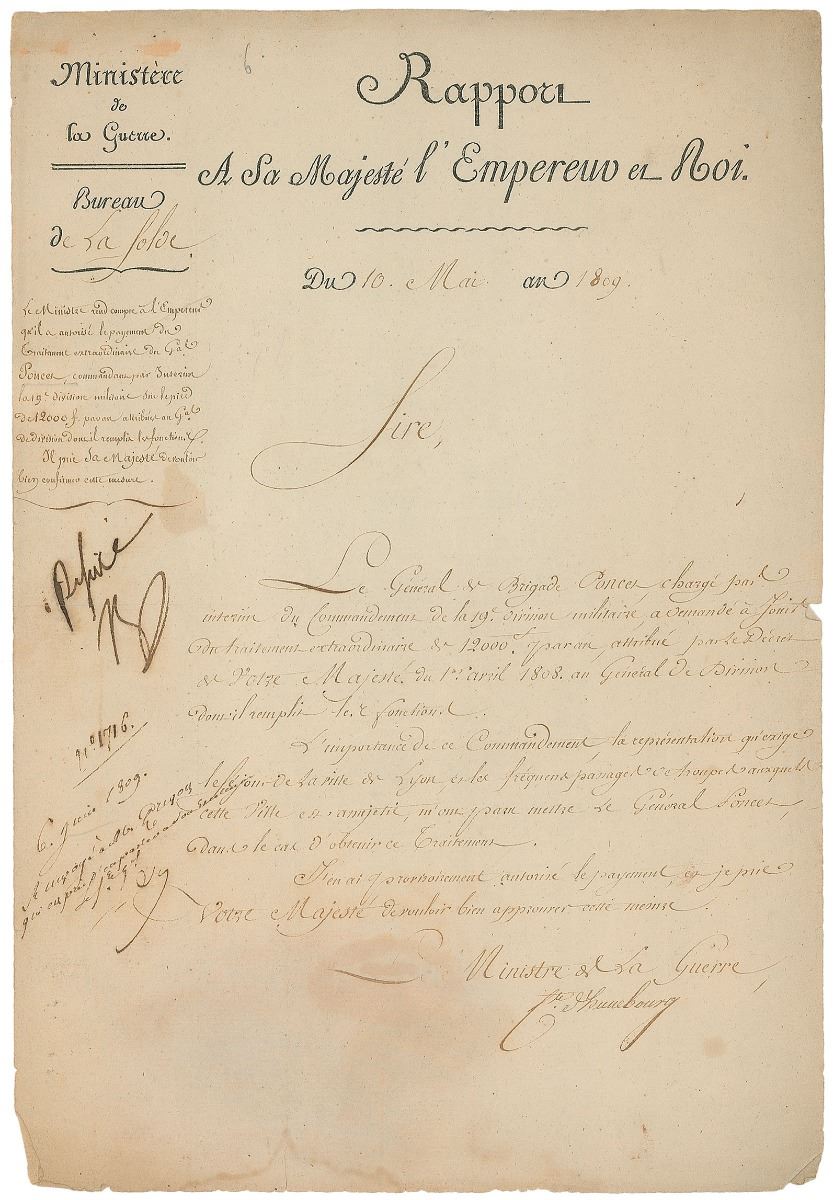 Ministère
de
la Guerre.
Bureau
de La Solde
6.
Rapport
A Sa Majesté l'Empereur et Roi.
Du 10. Mai an 1809.
Le Ministre rend compte à l'Empereur
qu'il a autorisé le payement du
Traitement extraordinaire du Gal.
Poncet, commandant par Interim
la 19e. division militaire sur le pied
de 12000 f. par an attribué au Gal.
de division dont il remplit les fonctions.
Il prie Sa Majesté de vouloir
bien confirmer cette mesure.
Sire,
Le Général de Brigade Poncet, chargé par
interim du Commandement de la 19e. division militaire, a demandé à Jouir
du traitement extraordinaire de 12000 f. par an, attribué par le Décret
de Votre Majesté du 1er. avril 1808. au Général de Division
dont il remplit les fonctions.
L'importance de ce Commandement, la représentation qu'exige
le séjour de La ville de Lyon, et les fréquens passages de troupes auxquels
cette Ville est assujetie, m'ont paru mettre Le Général Poncet,
dans le cas d'obtenir ce Traitement.
J'en ai provisoirement autorisé le payement, et je prie
Votre Majesté de vouloir bien approuver cette mesure.
Le Ministre de La Guerre,
Cte. d'hunebourg
n° 1716.
6. Juin 1809.